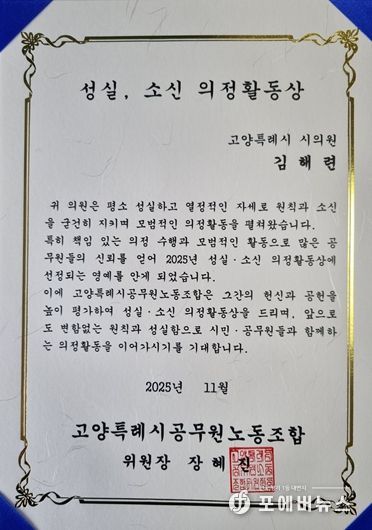 성실, 소신 의정활동상
고양특례시 시의원
김 해 련
귀 의원은 평소 성실하고 열정적인 자세로 원칙과 소신
을 굳건히 지키며 모범적인 의정활동을 펼쳐왔습니다.
특히 책임 있는 의정 수행과 모범적인 활동으로 많은 공
무원들의 신뢰를 얻어 2025년 성실·소신 의정활동상에
선정되는 영예를 안게 되었습니다.
이에 고양특례시공무원노동조합은 그간의 헌신과 공헌을
높이 평가하여 성실·소신 의정활동상을 드리며, 앞으로
도 변함없는 원칙과 성실함으로 시민·공무원들과 함께하
는 의정활동을 이어가시기를 기대합니다.
2025년 11월
고양특례시공무원노동조합
위원장 장 혜 진
포에버뉴스